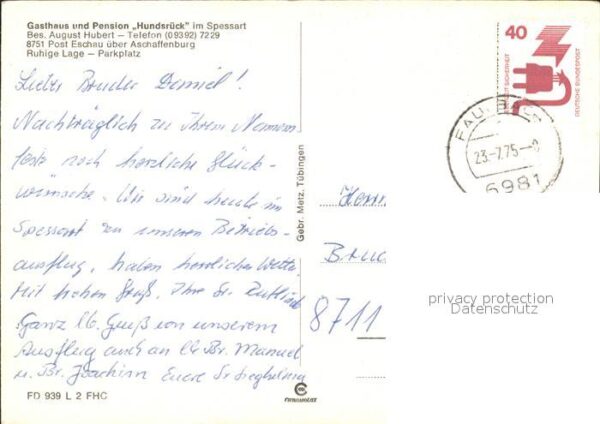 Gasthaus und Pension „Hundsrück" im Spessart
Bes. August Hubert – Telefon (09392) 7229
8751 Post Eschau über Aschaffenburg
Ruhige Lage – Parkplatz
Lieber Bruder Daniel!
Nachträglich zu Ihrem Namens
feste noch herzliche Glück-
wünsche. Wir sind heute im
Spessart zu unserem Betriebs-
ausflug, haben herrliches Wetter.
Mit frohem Gruß, Ihre Sr.
Ganz lb. Gruß von unserem
Ausflug auch an lb. Br. Manuel
u. Br. Joachim Eure Sr.
FD 939 L 2 FHC
Gebr. Metz, Tübingen
CHROMOLUX
40
DEUTSCHE BUNDESPOST
23-7.75
6981
Herrn
Bruder
8711
privacy protection
Datenschutz